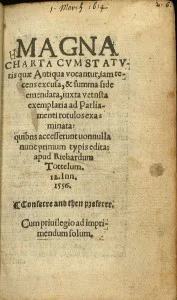 1. March 1614
MAGNA
CHARTA CVM STATV-
tis quæ Antiqua vocantur, iam re-
cens excusa, & summa fide
emendata, iuxta vetusta
exemplaria ad Parlia-
menti rotulos exa-
minata:
quibus accesserunt nonnulla
nunc primum typis edita:
apud Richardum
Tottelum.
12. Iun.
1556.
¶ Conferre and then preferre.
Cum priuilegio ad impri-
mendum solum.